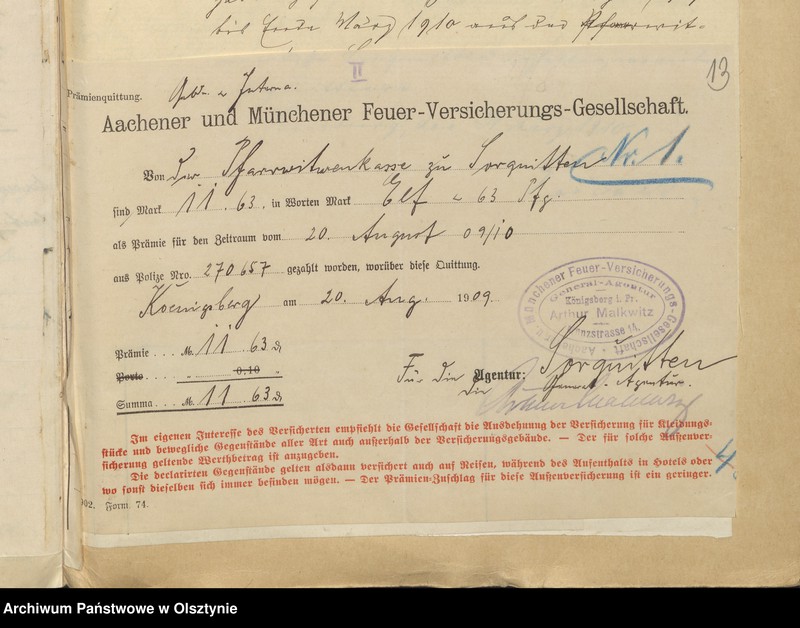 bis Ende März 1910 aus der Pfarrwit-
II
13
Prämienquittung.
Aachener und Münchener Feuer-Versicherungs-Gesellschaft.
Nr. 1.
Von der Pfarrwitwenkasse zu Sorquitten
sind Mark 11.63. in Worten Mark Elf u 63 Pfg.
als Prämie für den Zeitraum vom 20. August 09/10
aus Polize Nro. 270657 gezahlt worden, worüber diese Quittung.
Koenigsberg am 20. Aug. 1909.
Aachener und Münchener Feuer-Versicherungs-Gesellschaft
General-Agentur
Königsberg i. Pr.
Arthur Malkwitz
Prämie . . . M. 11 63 ₰
Porto . . . „ 0,10 „
Summa . . M. 11 63 ₰
Für die Agentur: Sorquitten
die General-Agentur.
Arthur Malkwitz
Im eigenen Interesse des Versicherten empfiehlt die Gesellschaft die Ausdehnung der Versicherung für Kleidungs-
stücke und bewegliche Gegenstände aller Art auch außerhalb der Versicherungsgebäude. — Der für solche Außenver-
sicherung geltende Werthbetrag ist anzugeben.
Die declarirten Gegenstände gelten alsdann versichert auch auf Reisen, während des Aufenthalts in Hotels oder
wo sonst dieselben sich immer befinden mögen. — Der Prämien-Zuschlag für diese Aussenversicherung ist ein geringer.
4
902. Form 74.
Archiwum Państwowe w Olsztynie